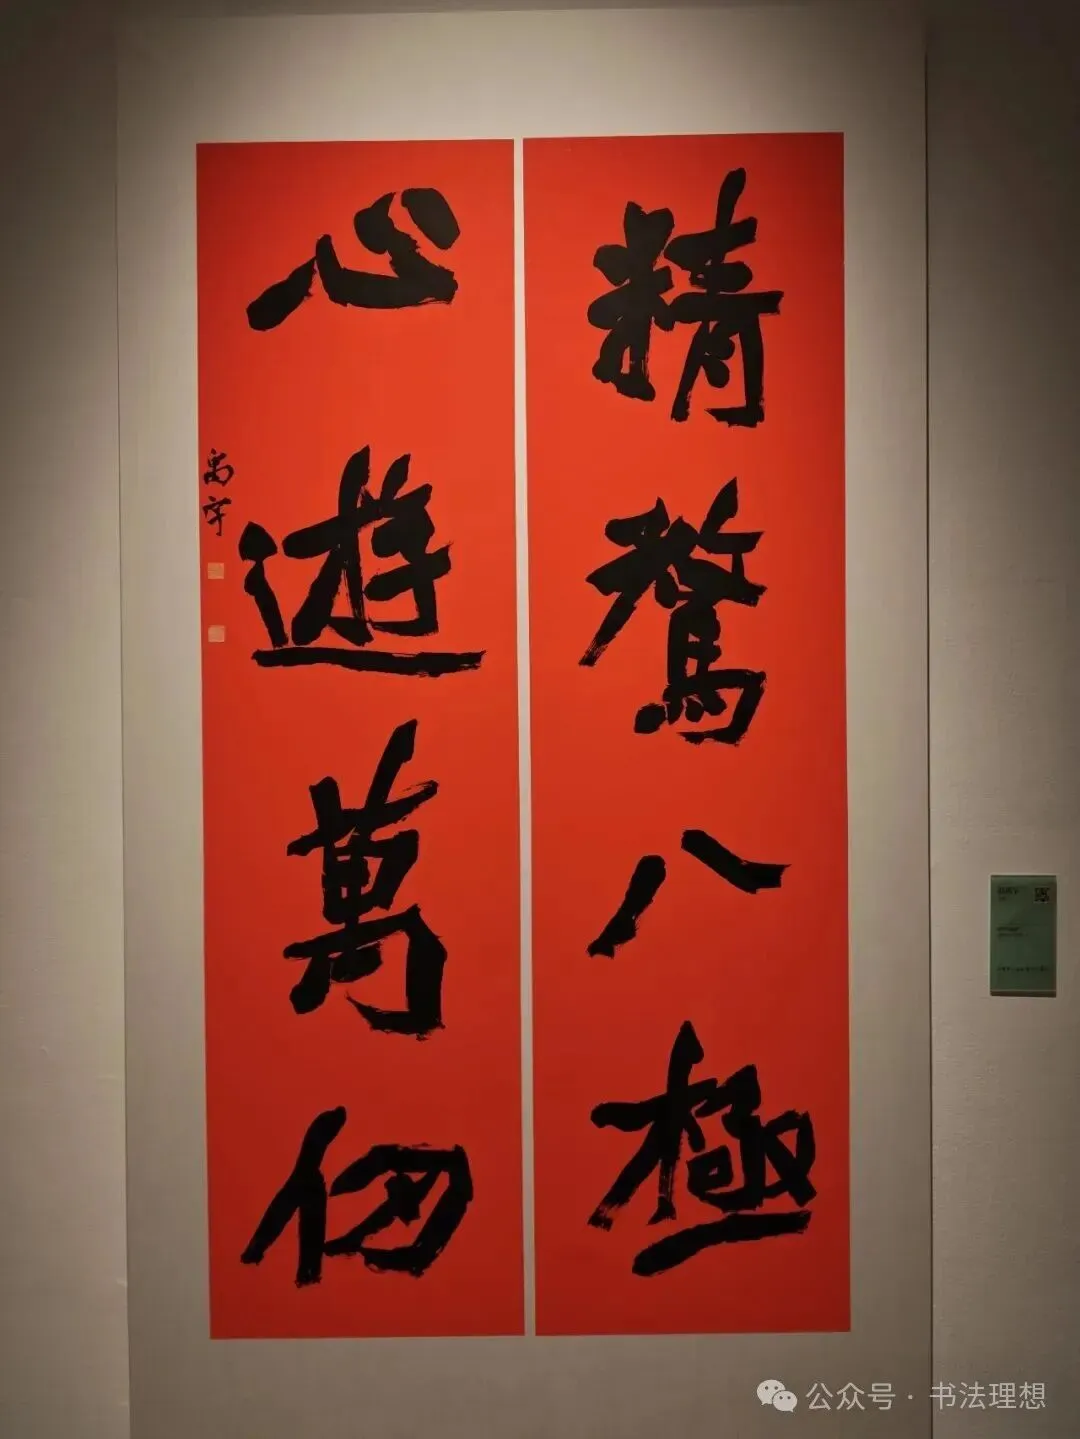 精騖八極
心遊萬仞
禹宇
公众号·书法理想